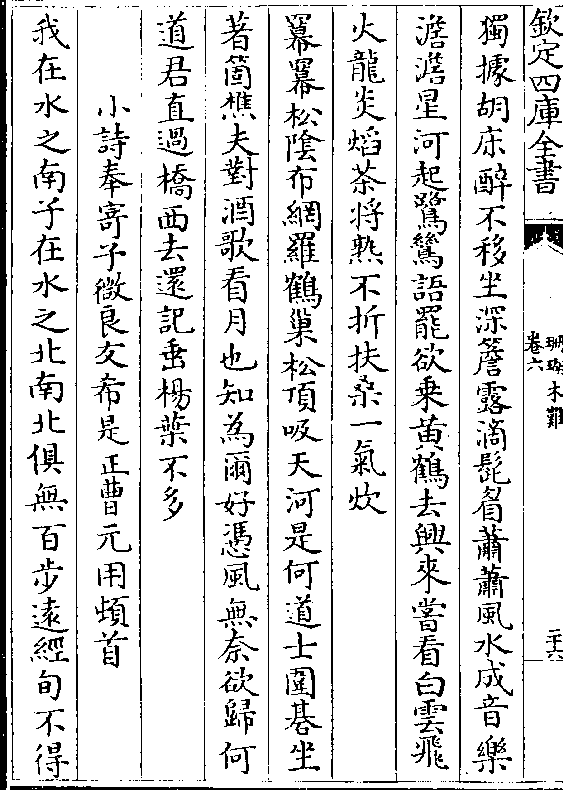 欽定四庫全書
珊瑚木難
卷六
二十六
獨據胡床醉不移坐深簷露滴髭眉蕭蕭風水成音樂
澹澹星河起鷺鷥語罷欲乗黄鶴去興來嘗看白雲飛
火龍炎焰茶将熟不折扶桑一氣炊
羃羃松隂布網羅鶴巢松頂吸天河是何道士圍棊坐
著箇樵夫對酒歌看月也知為爾好憑風無奈欲歸何
道君直過橋西去還記垂楊葉不多
小詩奉寄子微良友希是正曹元用頓首
我在水之南子在水之北南北俱無百步逺經旬不得